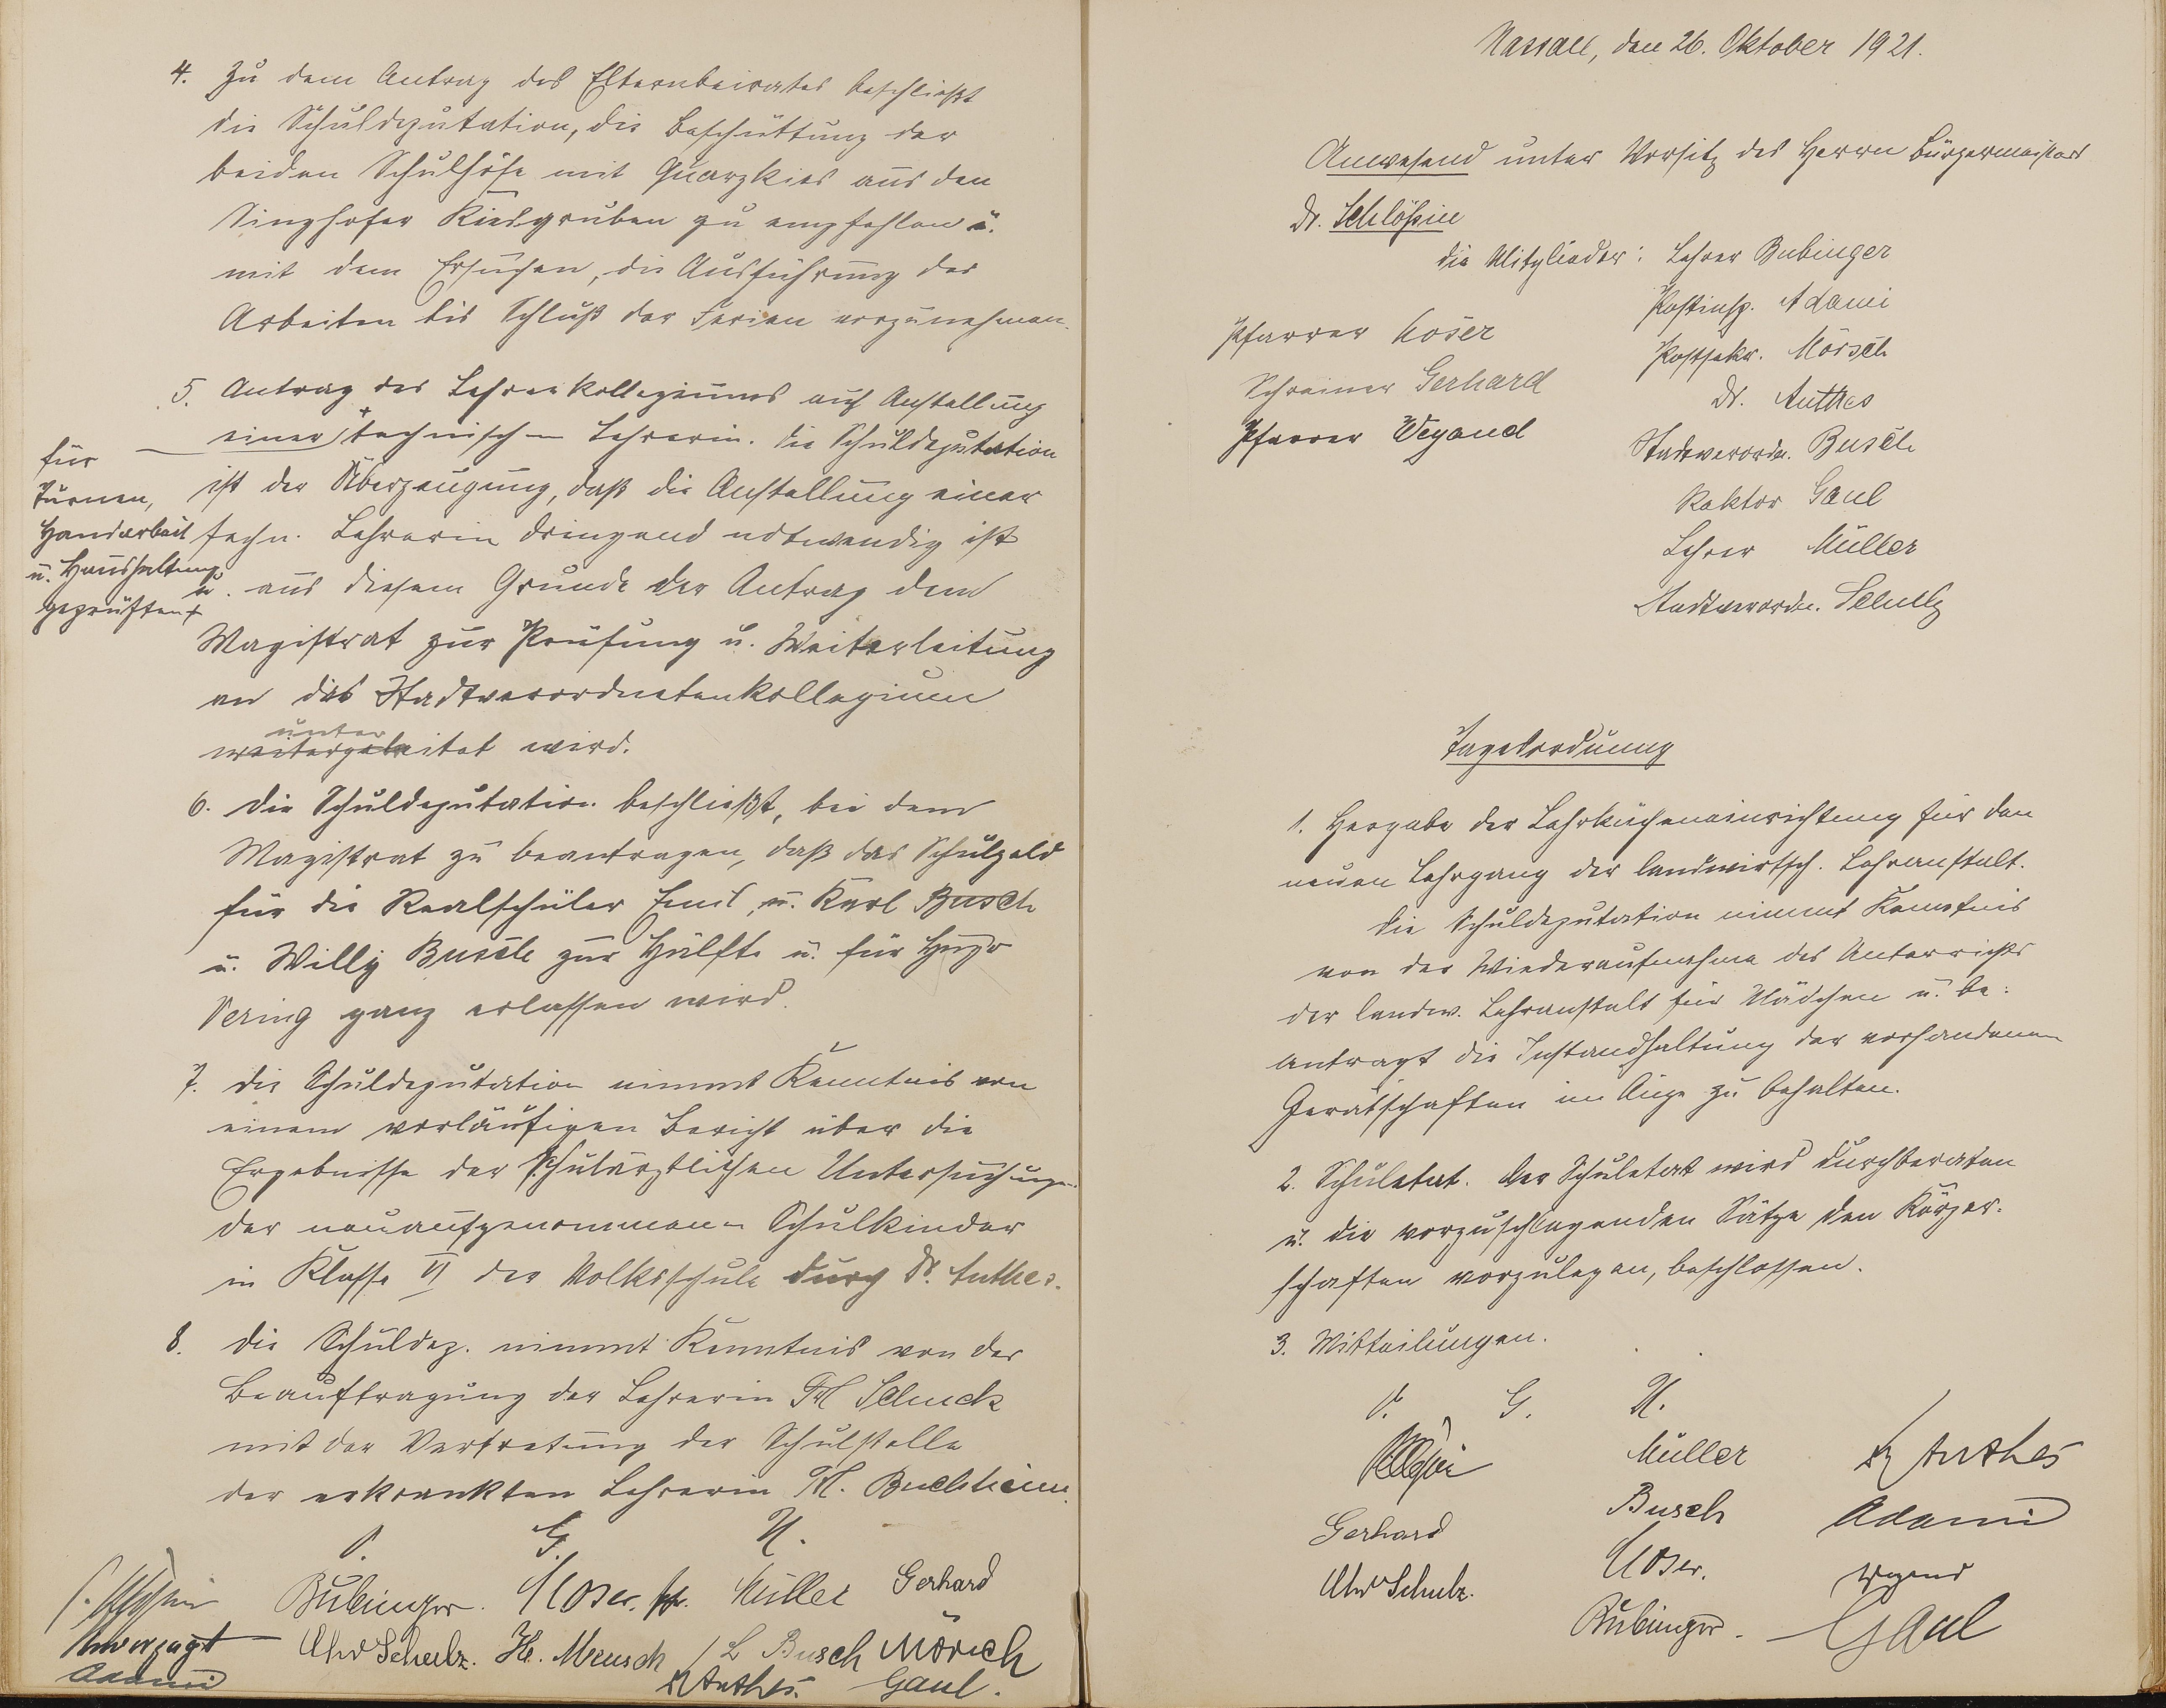 4. Zu dem Antrag des Elternbeirates beschließt
die Schuldeputation, die Beschüttung der
beiden Schulhöfe mit Quarzkies aus den
Singhofer Kiesgruben zu empfehlen u.
mit dem Ersuchen, die Ausführung der
Arbeiten bis Schluß der Ferien vorzunehmen.
5. Antrag des Lehrerkollegiums auf Anstellung
einer + technischen Lehrerin. Die Schuldeputation
ist der Überzeugung, daß die Anstellung einer
techn. Lehrerin dringend notwendig ist
u. aus diesem Grunde der Antrag dem
Magistrat zur Prüfung u. Weiterleitung
an das Stadtverordnetenkollegium
unter
weitergeleitet wird.
für
Turnen,
Handarbeit
u. Haushaltung
geprüften +
6. Die Schuldeputation beschließt, bei dem
Magistrat zu beantragen, daß das Schulgeld
für die Realschüler Emil u. Karl Busch
u. Willy Busch zur Hälfte u. für Hugo
Vering ganz erlassen wird.
7. Die Schuldeputation nimmt Kenntnis von
einem vorläufigen Bericht über die
Ergebnisse der Schulärztlichen Untersuchungen
der neuaufgenommenen Schulkinder
in Klasse VI der Volksschule durch Dr. Anthes.
8. Die Schuldep. nimmt Kenntnis von der
Beauftragung der Lehrerin Frl Schuck
mit der Vertretung der Schulstelle
der erkrankten Lehrerin Frl. Buchheim.
V. G. U.
Bubinger. Moser. Pfr. Müller Gerhard
Unverzagt Schulz. H. Meusch L Busch Mörsch
Adami Dr Anthes. Gaul.
Nassau, den 26. Oktober 1921.
Anwesend unter Vorsitz des Herrn Bürgermeisters
Dr. Schlössin
die Mitglieder: Lehrer Bubinger
Postinsp. Adami
Pfarrer Moser
Postsekr. Mörsch
Schreiner Gerhard
Dr. Anthes
Pfarrer Weyand
Stadtverordn. Busch
Rektor Gaul
Lehrer Müller
Stadtverordn. Schulz
Tagesordnung
1. Hergabe der Lehrkücheneinrichtung für den
neuen Lehrgang der landwirtsch. Lehranstalt.
Die Schuldeputation nimmt Kenntnis
von der Wiederaufnahme des Unterrichts
der landw. Lehranstalt für Mädchen u. be-
antragt die Instandhaltung der vorhandenen
Gerätschaften im Auge zu behalten.
2. Schuletat. Der Schuletat wird durchberaten
u. die vorzuschlagenden Sätze den Körper-
schaften vorzulegen, beschlossen.
3. Mitteilungen.
V. G. U.
Müller Dr Anthes
Gerhard Busch Adami
Schulz. Moser. Weyand
Bubinger. Gaul